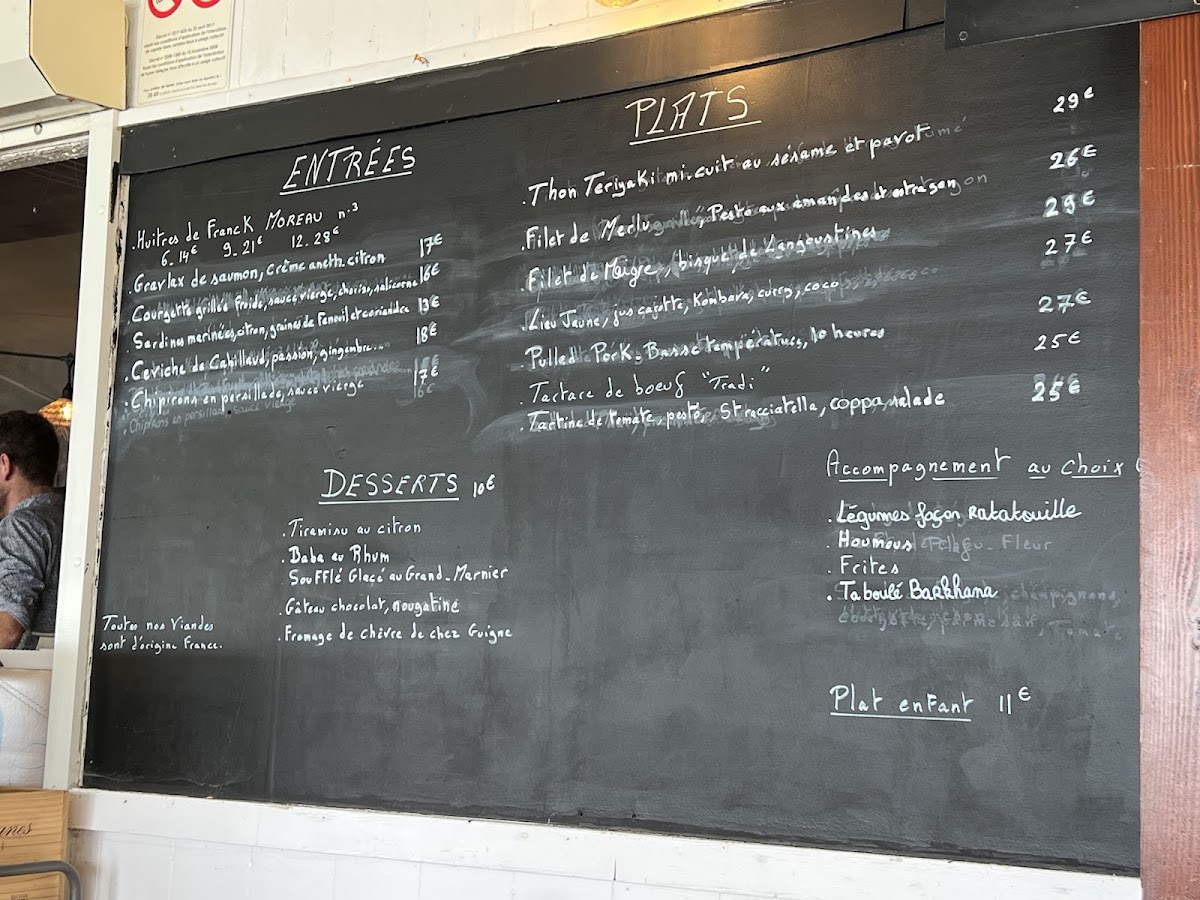 ENTRÉES
. Huitres de Franck MOREAU n°3
6_14€ 9_21€ 12_28€
. Gravlax de saumon, crème aneth citron 17€
. Courgette grillée froide, sauce vierge, chorizo, salicorne 16€
. Sardines marinées, citron, graines de fenouil et coriandre 13€
. Ceviche de Cabillaud, passion, gingembre... 18€
. Chipirons en persillade, sauce vierge 17€
PLATS
. Thon Teriyaki mi-cuit au sésame et pavot 29€
. Filet de Merlu, Pesto aux amandes et estragon 26€
. Filet de Maigre, bisque de Langoustines 29€
. Lieu Jaune, jus cajotte, Kombava, curry, coco 27€
. Pulled Pork, Basse température, 10 heures 27€
. Tartare de boeuf "Tradi" 25€
. Tartine de tomate, pesto, Stracciatella, coppa, salade 25€
DESSERTS 10€
. Tiramisu au citron
. Baba au Rhum
. Soufflé Glacé au Grand-Marnier
. Gâteau chocolat, nougatine
. Fromage de chèvre de chez Guigne
Toutes nos Viandes
sont d'origine France.
Accompagnement au choix
. Légumes façon Ratatouille
. Houmous
. Frites
. Taboulé Barkhana
Plat enfant 11€